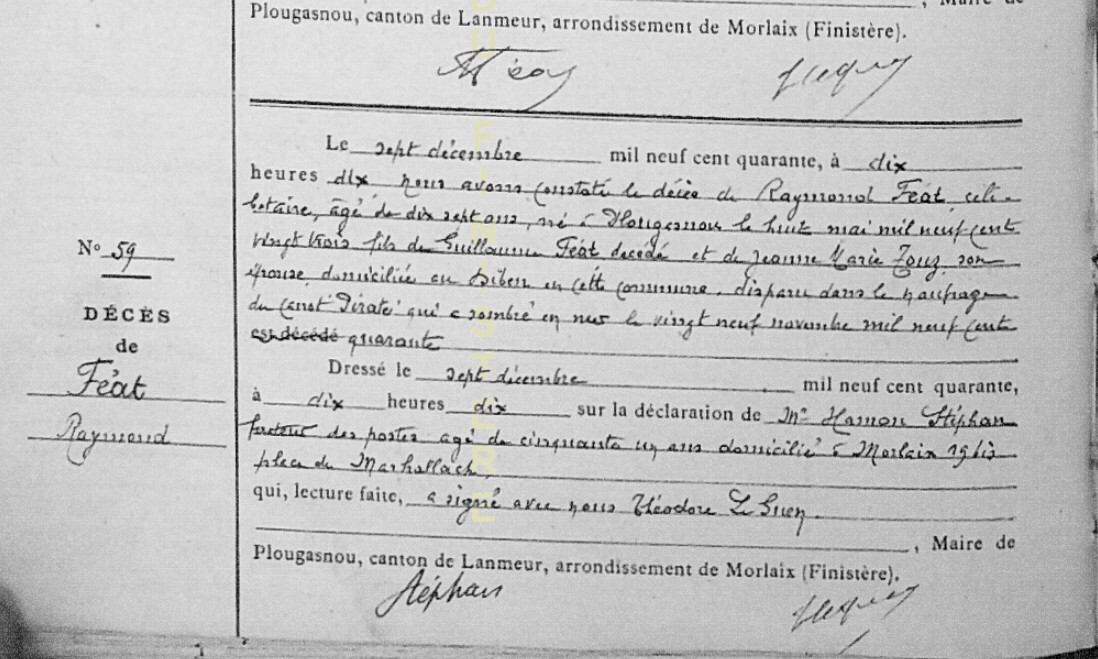 , Maire de
Plougasnou, canton de Lanmeur, arrondissement de Morlaix (Finistère).
Le sept décembre mil neuf cent quarante, à dix
heures dix nous avons constaté le décès de Raymond Féat, céli-
bataire, âgé de dix sept ans, né à Plougasnou le huit mai mil neuf cent
vingt trois fils de Guillaume Féat décédé et de Jeanne Marie Zouz, son
épouse, domiciliée au Diben en cette commune, disparu dans le naufrage
du canot "Pirate" qui a sombré en mer le vingt neuf novembre mil neuf cent
est décédé quarante
Nº 59
DÉCÈS
de
Féat
Raymond
Dressé le sept décembre mil neuf cent quarante,
à dix heures dix sur la déclaration de Mr Hamon Stéphan
facteur des postes âgé de cinquante un ans domicilié à Morlaix 19 bis
place du Marhallach
qui, lecture faite, a signé avec nous Théodore Le Guen
, Maire de
Plougasnou, canton de Lanmeur, arrondissement de Morlaix (Finistère).
Stéphan